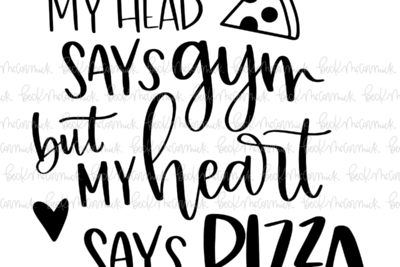 MY HEAD
SAYS gym
but
MY heart
SAYS PIZZA